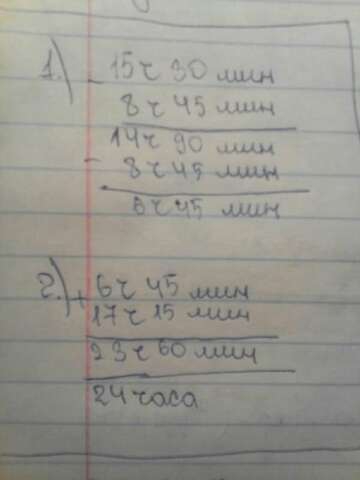 1.) - 15ч 30 мин
8ч 45 мин
14ч 90 мин
- 8ч 45 мин
6ч 45 мин
2.) + 6ч 45 мин
17ч 15 мин
23ч 60 мин
24 часа